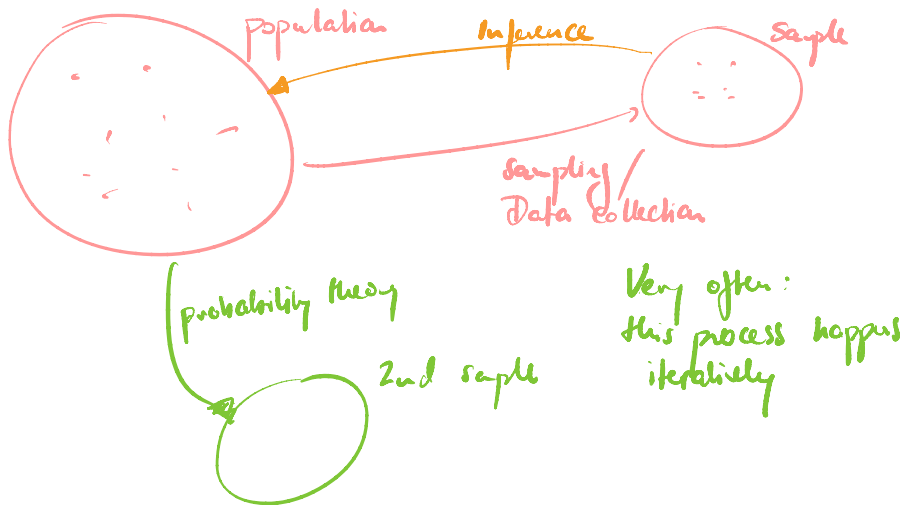 population
Inference
Sample
Sampling /
Data collection
probability theory
Very often:
this process happens
iteratively
2nd sample